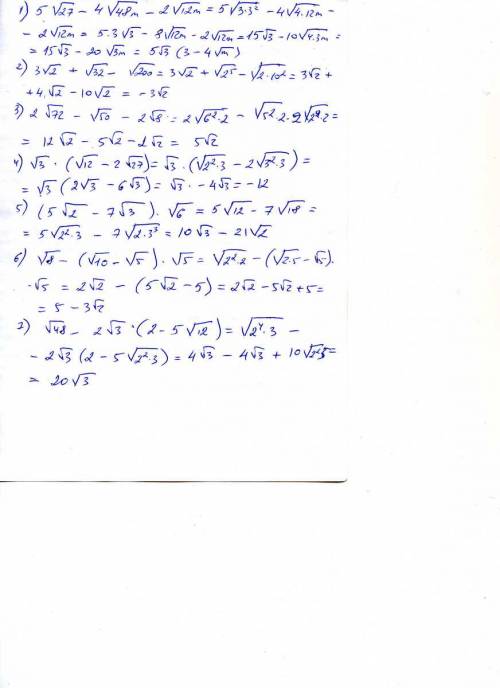 1) 5√27 - 4√48m - 2√12m = 5√3·3² - 4√4·12m -
- 2√12m = 5·3√3 - 8√12m - 2√12m = 15√3 - 10√4·3m =
= 15√3 - 20√3m = 5√3 (3 - 4√m)
2) 3√2 + √32 - √200 = 3√2 + √2⁵ - √2·10² = 3√2 +
+ 4√2 - 10√2 = -3√2
3) 2√72 - √50 - 2√8 = 2√6²·2 - √5²·2 - 2√2²·2 =
= 12√2 - 5√2 - 2√2 = 5√2
4) √3 · (√12 - 2√27) = √3 · (√2²·3 - 2√3²·3) =
= √3 (2√3 - 6√3) = √3 · -4√3 = -12
5) (5√2 - 7√3) · √6 = 5√12 - 7√18 =
= 5√2²·3 - 7√2·3² = 10√3 - 21√2
6) √8 - (√10 - √5) · √5 = √2²·2 - (√2·5 - √5) ·
·√5 = 2√2 - (5√2 - 5) = 2√2 - 5√2 + 5 =
= 5 - 3√2
7) √48 - 2√3 · (2 - 5√12) = √2⁴·3 -
- 2√3 (2 - 5√2²·3) = 4√3 - 4√3 + 10√2²·3 =
= 20√3